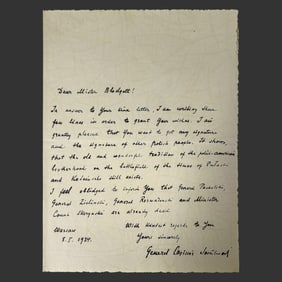 Dear Mister Blodgett!
In answer to Your kind letter, I am writing these
You lines in order to grant Your wishes. I am
greatly pleased that You want to get my signature
and the signatures of other Polish people. It shows,
that the old and wonderful tradition of the polish-american
brotherhood on the battlefields of the times of Pułaski
and Kościuszko still exists.
I feel obliged to inform You that General
General Zieliński, General Rozwadowski and Minister
Count Skrzyński are already dead.
With kindest regards to You
Warsaw
Yours sincerely
1934.
General